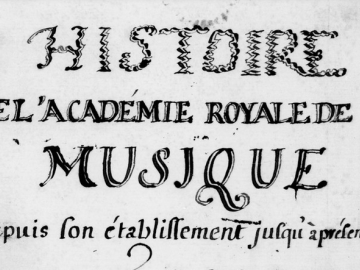 HISTOIRE
EL'ACADÉMIE ROYALE DE
MUSIQUE
puis son établissement jusqu'à présen